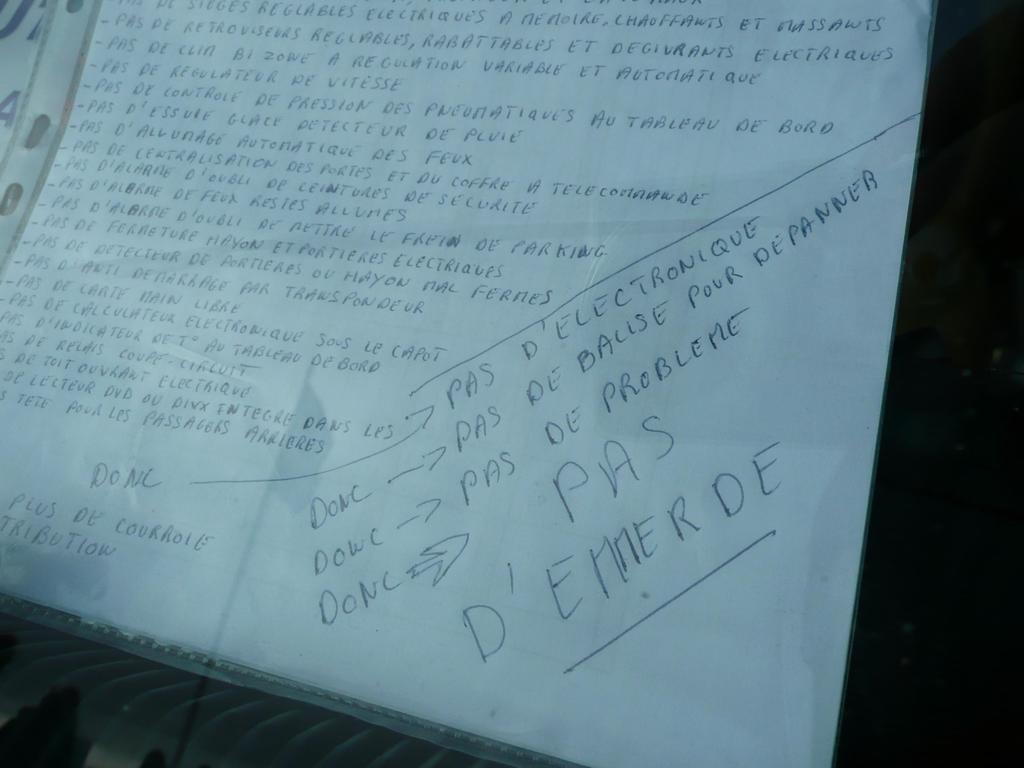 - PAS DE SIEGES REGLABLES ELECTRIQUES A MEMOIRE, CHAUFFANTS ET MASSANTS
- PAS DE RETROVISEURS REGLABLES, RABATTABLES ET DEGIVRANTS ELECTRIQUES
- PAS DE CLIM BI ZONE A REGULATION VARIABLE ET AUTOMATIQUE
- PAS DE REGULATEUR DE VITESSE
- PAS DE CONTROLE DE PRESSION DES PNEUMATIQUES AU TABLEAU DE BORD
- PAS D'ESSUIE GLACE DETECTEUR DE PLUIE
- PAS D'ALLUMAGE AUTOMATIQUE DES FEUX
- PAS DE CENTRALISATION DES PORTES ET DU COFFRE A TELECOMMANDE
- PAS D'ALARME D'OUBLI DE CEINTURES DE SECURITE
- PAS D'ALARME DE FEUX RESTES ALLUMES
- PAS D'ALARME D'OUBLI DE METTRE LE FREIN DE PARKING
- PAS DE FERMETURE HAYON ET PORTIERES ELECTRIQUES
- PAS DE DETECTEUR DE PORTIERES OU HAYON MAL FERMES
- PAS D'ANTI DEMARRAGE PAR TRANSPONDEUR
- PAS DE CARTE MAIN LIBRE
- PAS DE CALCULATEUR ELECTRONIQUE SOUS LE CAPOT
PAS D'INDICATEUR DE T° AU TABLEAU DE BORD
AS DE RELAIS COUPE-CIRCUIT
S DE TOIT OUVRANT ELECTRIQUE
DE LECTEUR DVD OU DIVX INTEGRE DANS LES
S TETE POUR LES PASSAGERS ARRIERES
DONC
PLUS DE COURROIE
TRIBUTION
PAS D'ELECTRONIQUE
DONC → PAS DE BALISE POUR DEPANNER
DONC → PAS DE PROBLEME
DONC ⇒ PAS
D'EMMERDE